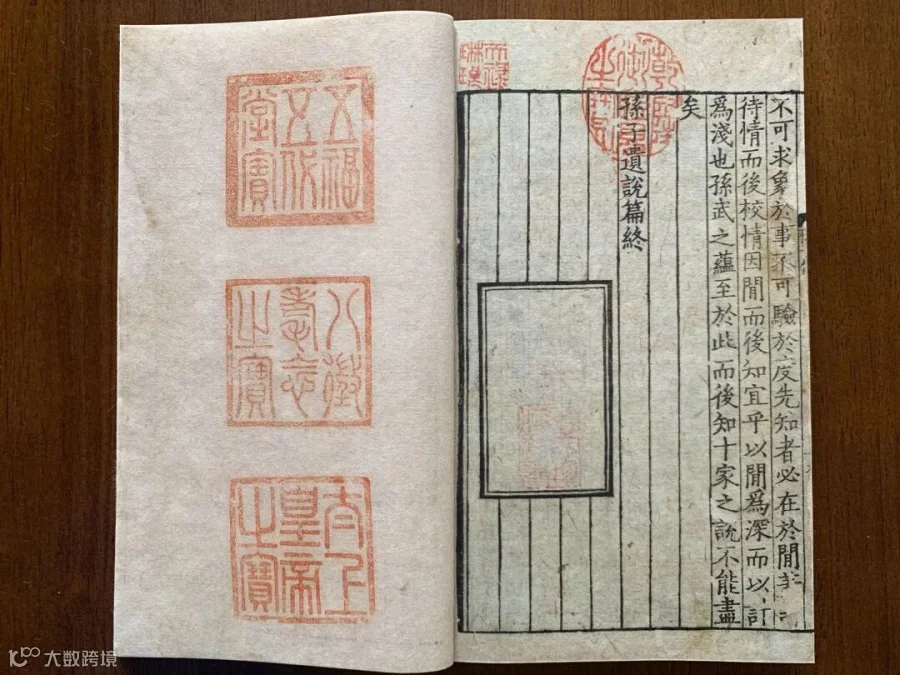 不可求象於事不可驗於度先知者必在於閒
待情而後校情因閒而後知宜乎以閒爲深而以計
爲淺也孫武之蘊至於此而後知十家之說不能盡
矣
孫子遺說篇終
乾隆御覽之寶
天祿琳琅
五福五代堂寶
八徵耄念之寶
太上皇帝之寶
大数跨境